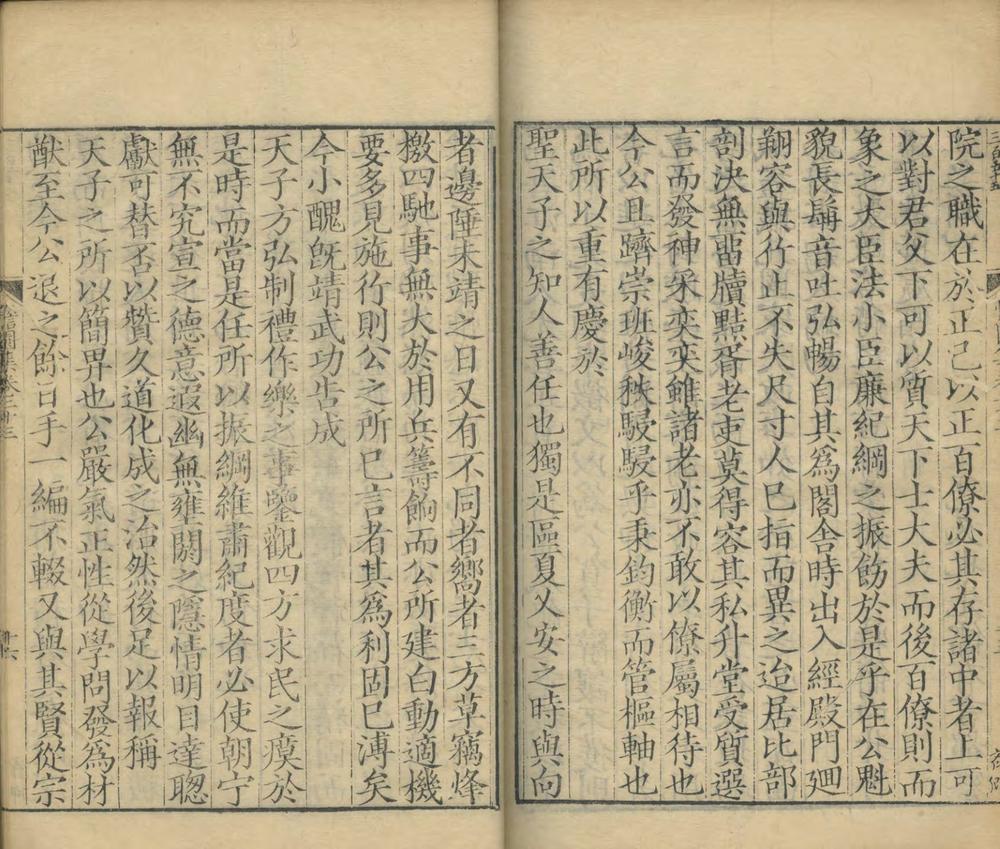 院之職在於正己以正百僚必其存諸中者上可
以對君父下可以質天下士大夫而後百僚則而
象之大臣法小臣廉紀綱之振飭於是乎在公魁
貌長鬚音吐弘暢自其為閣舍時出入經殿門廻
翔容與行止不失尺寸人已指而異之迨居比部
剖決無留牘黠胥老吏莫得容其私升堂受質選
言而發神采奕奕雖諸老亦不敢以僚屬相待也
今公且躋崇班峻秩駸駸乎秉鈞衡而管樞軸也
此所以重有慶於
聖天子之知人善任也獨是區夏乂安之時與向
者邊陲未靖之日又有不同者嚮者三方草竊烽
檄四馳事無大於用兵籌餉而公所建白動適機
要多見施行則公之所已言者其為利固已溥矣
今小醜既靖武功告成
天子方弘制禮作樂之事鑒觀四方求民之瘼於
是時而當是任所以振綱維肅紀度者必使朝宁
無不究宣之德意遐幽無壅閼之隱情明目達聰
獻可替否以贊久道化成之治然後足以報稱
天子之所以簡畀也公嚴氣正性從學問發為材
猷至今公退之餘口手一編不輟又與其賢從宗